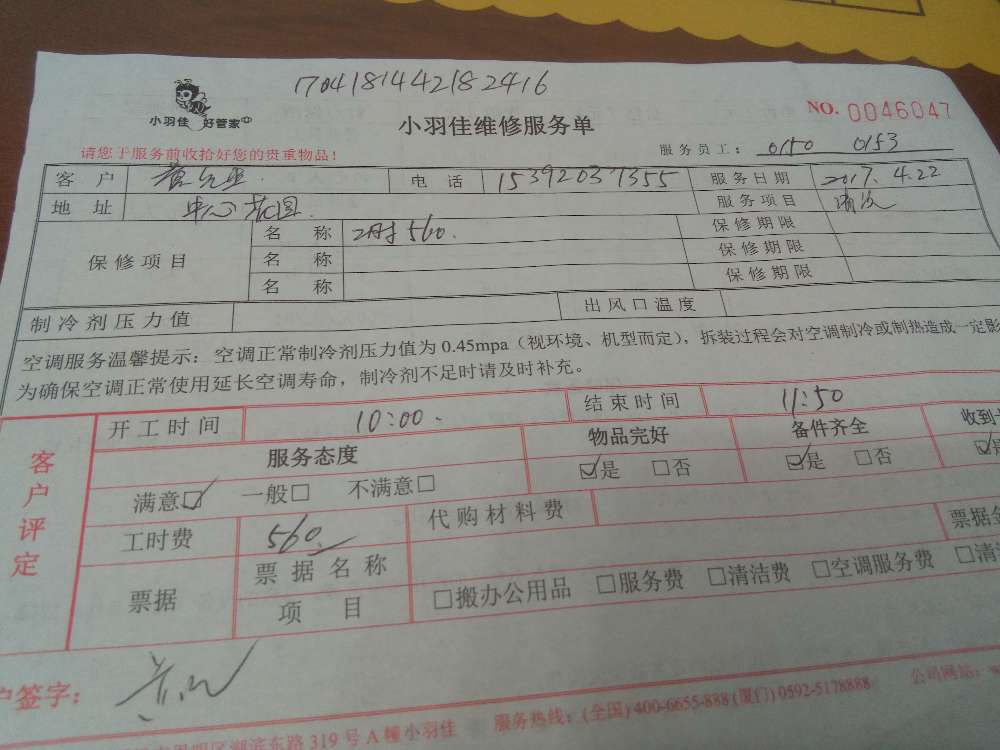 1704181442182416
小羽佳 好管家
NO. 0046047
小羽佳维修服务单
请您于服务前收拾好您的贵重物品!
服务员工: 0150 0153
客户 电话 15392037355 服务日期 2017.4.22
地址 中心花园. 服务项目
保修项目 名称 560. 保修期限
名称 保修期限
名称 保修期限
制冷剂压力值 出风口温度
空调服务温馨提示:空调正常制冷剂压力值为 0.45mpa(视环境、机型而定),拆装过程会对空调制冷或制热造成一定影
为确保空调正常使用延长空调寿命,制冷剂不足时请及时补充。
客户评定
开工时间 10:00. 结束时间 11:50
服务态度 物品完好 备件齐全 收到
满意☑ 一般□ 不满意□ ☑是 □否 ☑是 □否 ☑是
工时费 560. 代购材料费
票据 票据名称 票据金
项目 □搬办公用品 □服务费 □清洁费 □空调服务费 □清
户签字:
湖滨东路 319 号 A 幢小羽佳 服务热线:(全国)400-6655-888 (厦门) 0592-5178888 公司网站: